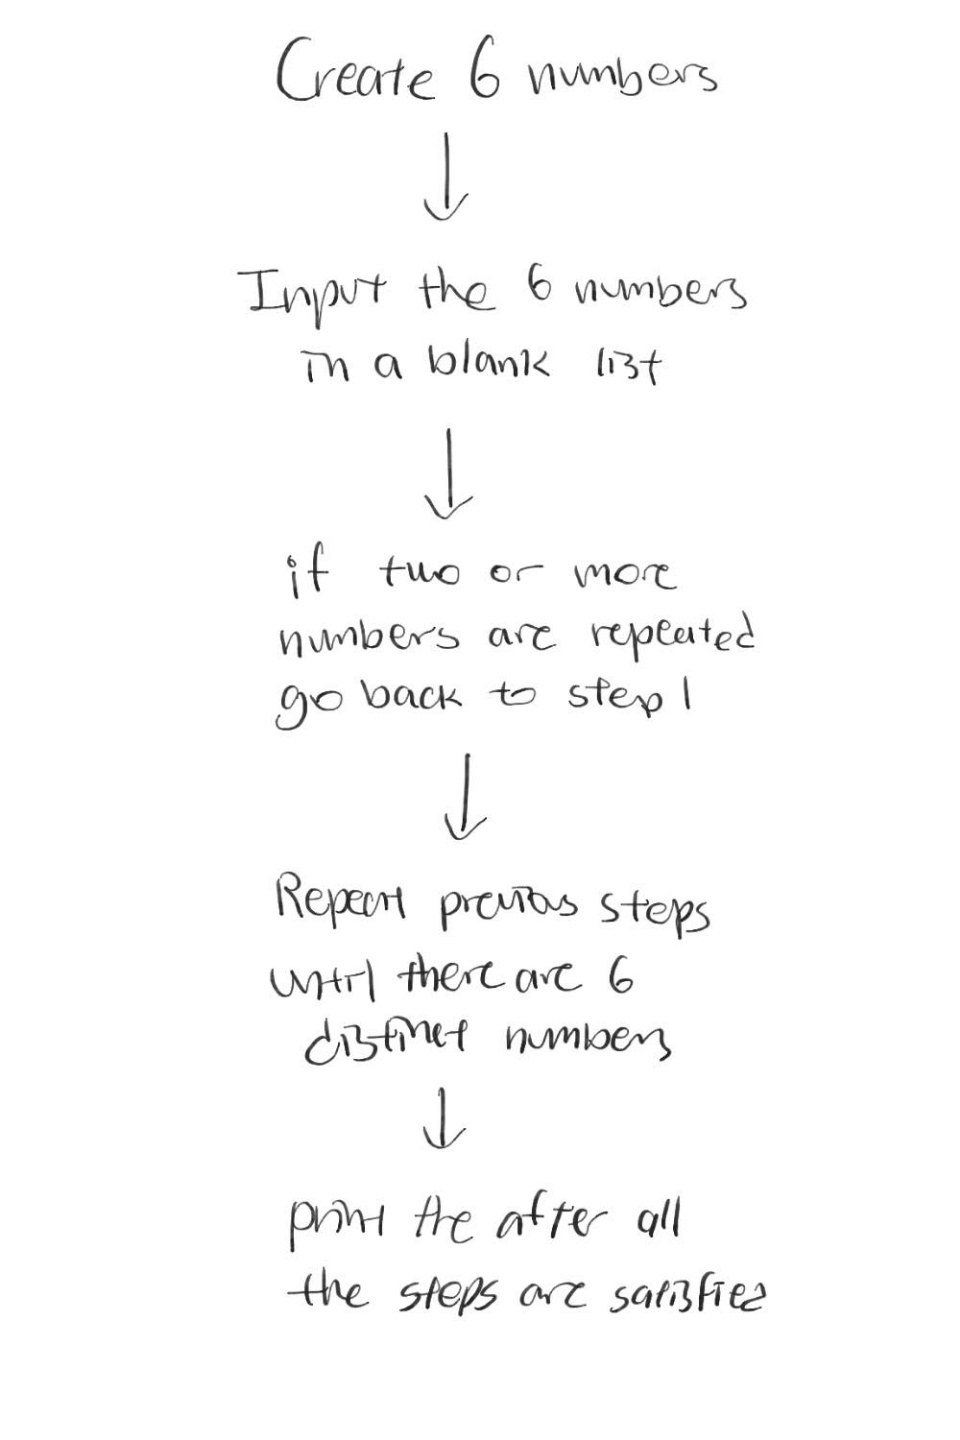 Create 6 numbers
Input the 6 numbers
in a blank list
if two or more
numbers are repeated
go back to step 1
Repeat previous steps
until there are 6
distinct numbers
print the after all
the steps are satisfied